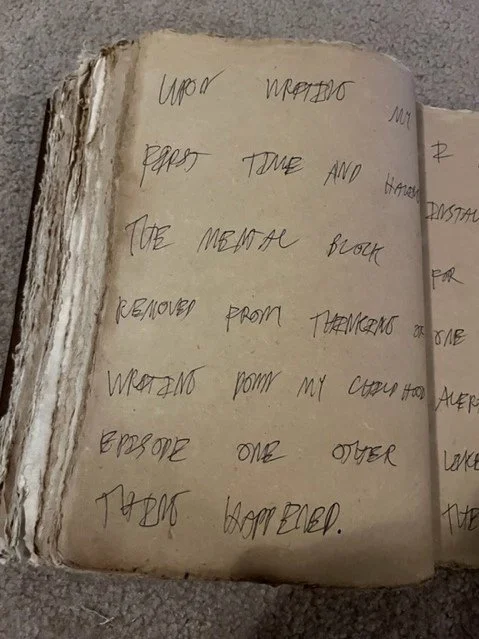 UPON WRITING MY
FIRST TIME AND HAVING
THE MENTAL BLOCK
REMOVED FROM THINKING OR
WRITING DOWN MY CHILDHOOD
EPISODE ONE OTHER
THING HAPPENED.
I
INSTAL
FOR
ONE
ALER
LIKE
THE